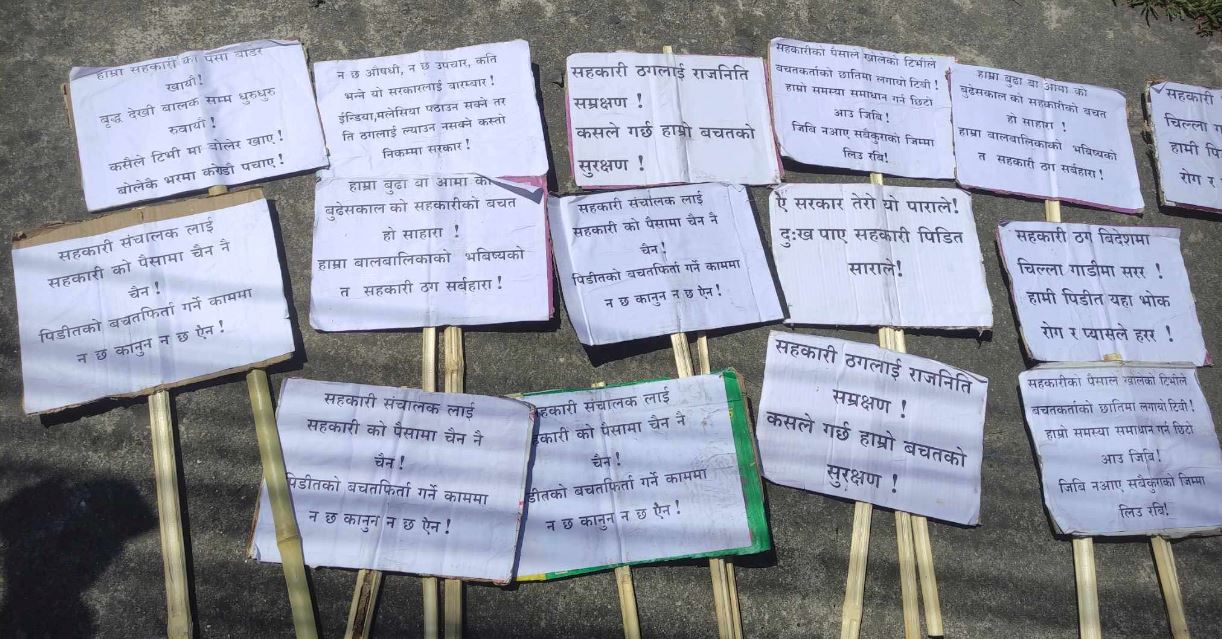 हाम्रा सहकारी का पैसा बाडेर
खायौ!
वृद्ध देखी बालक सम्म धुरुधुरु
रुवायौ!
कसैले टिभी मा बोलेर खाए!
बोलेकै भरमा करोडौ पचाए!
न छ औषधी, न छ उपचार, कति
भन्ने यो सरकारलाई बारम्बार!
ईन्डिया,मलेसिया पठाउन सक्ने तर
ति ठगलाई ल्याउन नसक्ने कस्तो
निकम्मा सरकार!
सहकारी ठगलाई राजनिति
सम्रक्षण !
कसले गर्छ हाम्रो बचतको
सुरक्षण !
सहकारीको पैसाले खोलेको टिभीले
बचतकर्ताको छातिमा लगायो टिवी!
हाम्रो समस्या समाधान गर्न छिटो
आउ जिबि!
जिबि नआए सबैकुराको जिम्मा
लिउ रबि!
हाम्रा बुढा बा आमा को
बुढेसकाल को सहकारीको बचत
हो साहारा !
हाम्रा बालबालिकाको भबिष्यको
त सहकारी ठग सर्बहारा!
सहकारी
चिल्ला ग
हामी पि
रोग र
सहकारी संचालक लाई
सहकारी को पैसामा चैन नै
चैन!
पिडीतको बचतफिर्ता गर्ने काममा
न छ कानुन न छ ऐन!
हाम्रा बुढा बा आमा को
बुढेसकाल को सहकारीको बचत
हो साहारा !
हाम्रा बालबालिकाको भबिष्यको
त सहकारी ठग सर्बहारा!
सहकारी संचालक लाई
सहकारी को पैसामा चैन नै
चैन!
पिडीतको बचतफिर्ता गर्ने काममा
न छ कानुन न छ ऐन!
ऐ सरकार तेरो यो पाराले!
दुःख पाए सहकारी पिडित
साराले!
सहकारी ठग बिदेशमा
चिल्ला गाडीमा सरर !
हामी पिडीत यहा भोक
रोग र प्यासले हरर !
सहकारी संचालक लाई
सहकारी को पैसामा चैन नै
चैन!
पिडीतको बचतफिर्ता गर्ने काममा
न छ कानुन न छ ऐन!
हकारी संचालक लाई
कारी को पैसामा चैन नै
चैन!
डीतको बचतफिर्ता गर्ने काममा
न छ कानुन न छ ऐन!
सहकारी ठगलाई राजनिति
सम्रक्षण !
कसले गर्छ हाम्रो बचतको
सुरक्षण !
सहकारीका पैसाले खोलेको टिभीले
बचतकर्ताको छातिमा लगायो टिवी!
हाम्रो समस्या समाधान गर्न छिटो
आउ जिबि!
जिबि नआए सबैकुराको जिम्मा
लिउ रबि!